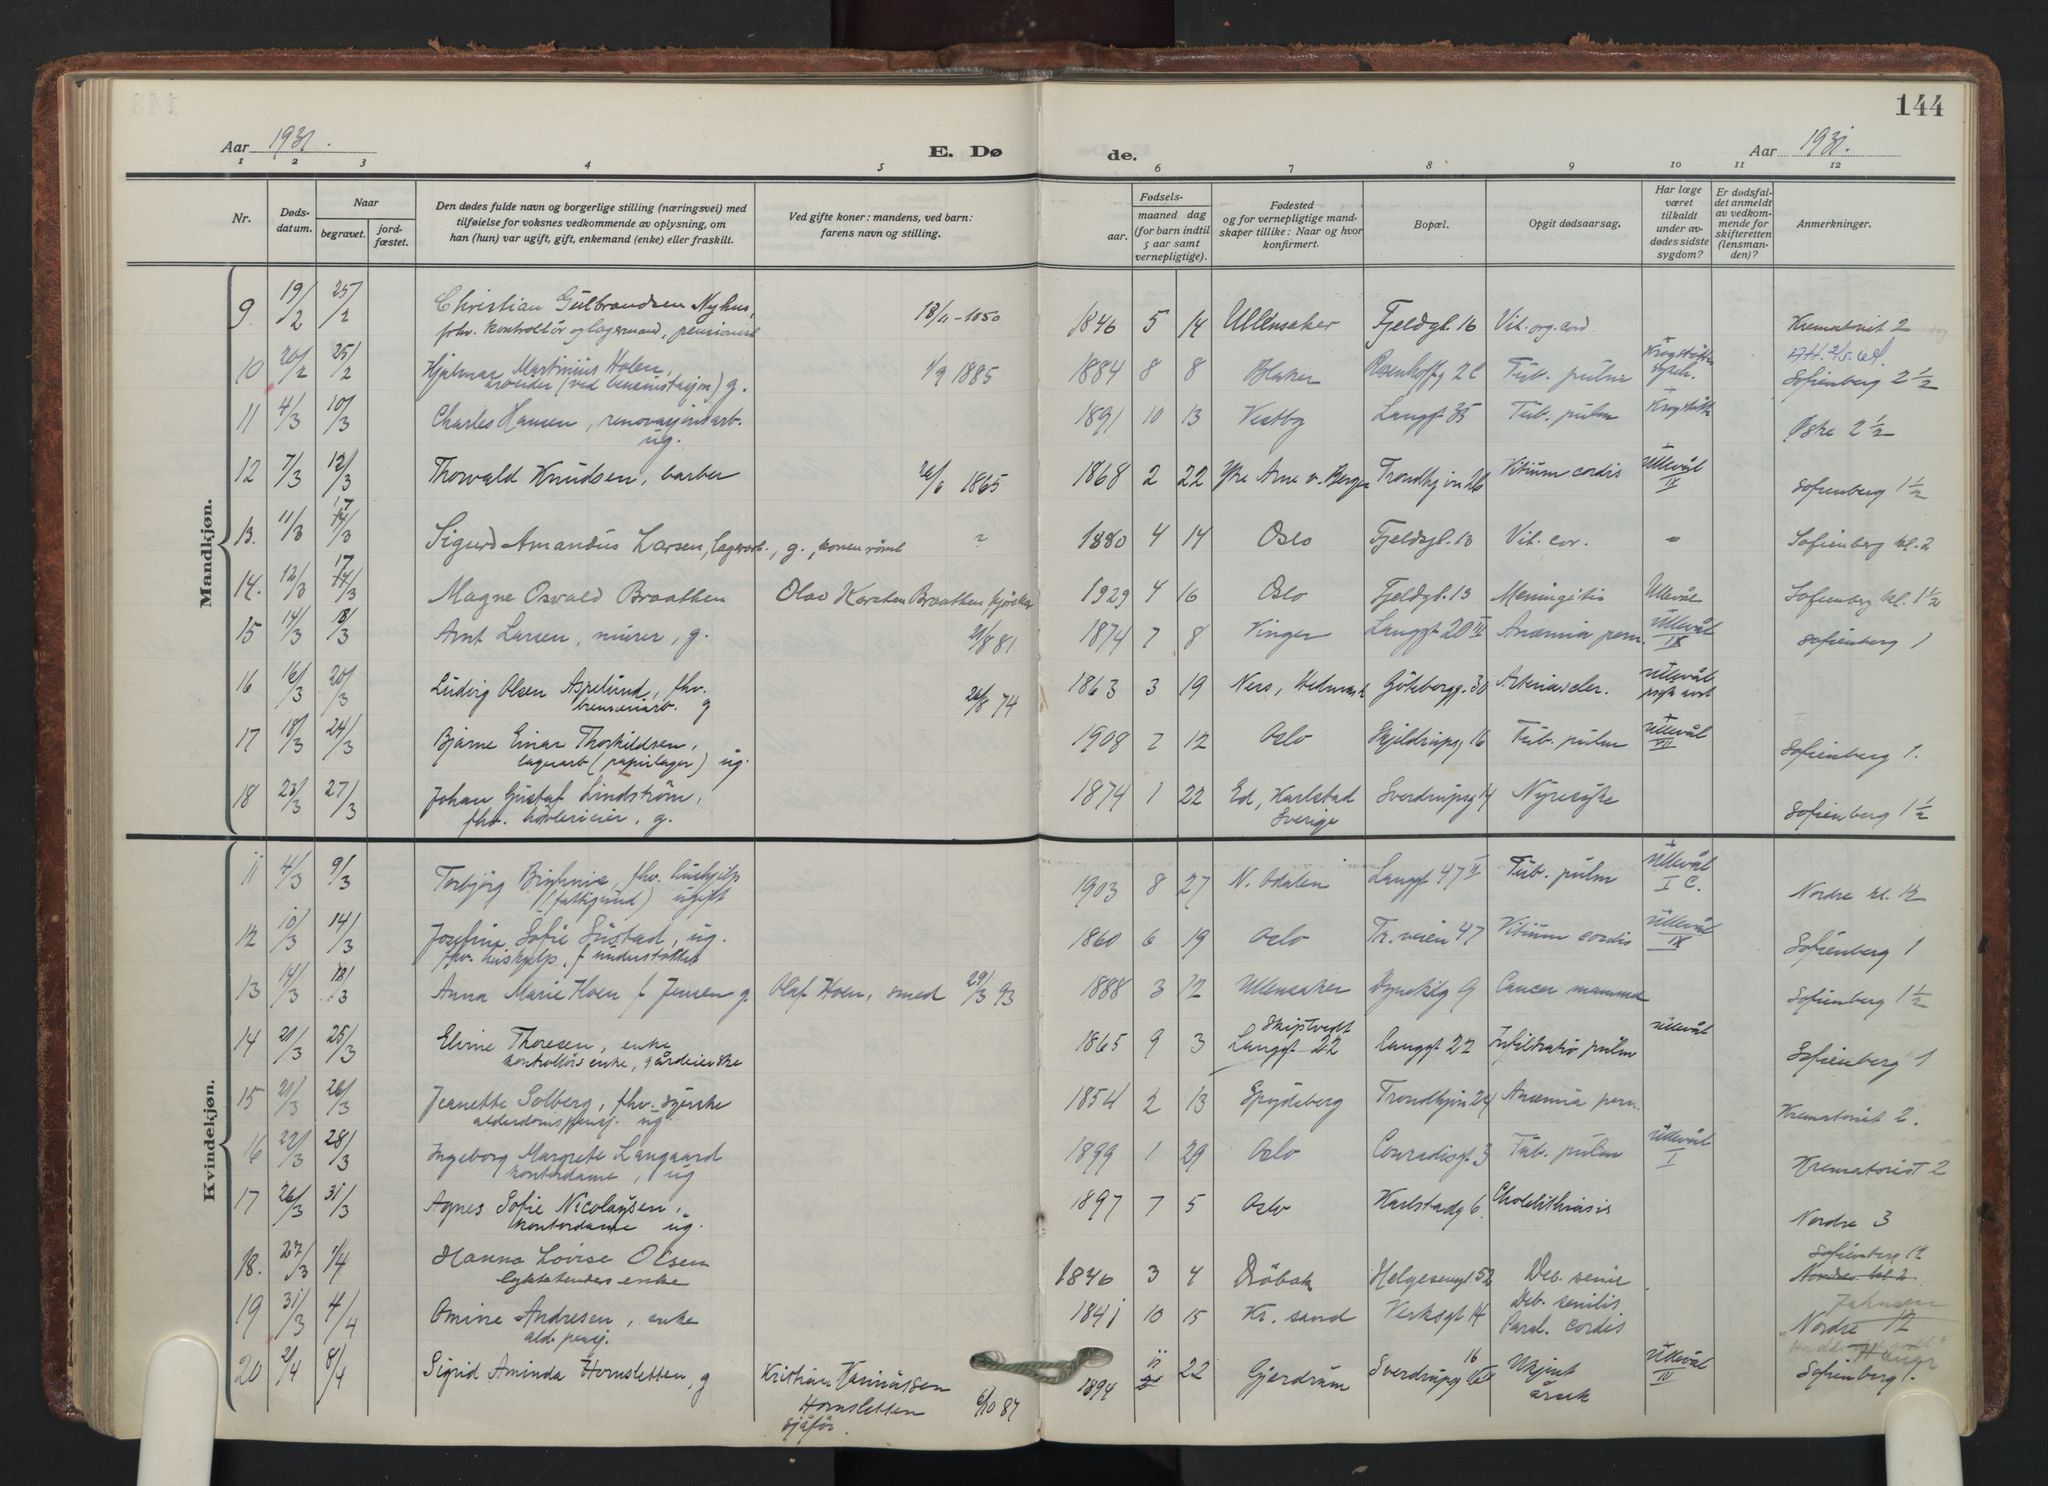 144
Aar 1931.
E. Døde.
Aar 1931.
1 2 3 4 5 6 7 8 9 10 11 12
Nr.
Døds-datum.
Naar
begravet.
jord-fæstet.
Den dødes fulde navn og borgerlige stilling (næringsvei) med
tilføielse for voksnes vedkommende av oplysning, om
han (hun) var ugift, gift, enkemand (enke) eller fraskilt.
Ved gifte koner: mandens, ved barn:
farens navn og stilling.
Fødsels-
aar.
maaned dag
(for barn indtil
5 aar samt
vernepligtige).
Fødested
og for vernepligtige mand-
skaper tillike: Naar og hvor
konfirmert.
Bopæl.
Opgit dødsaarsag.
Har læge
været
tilkaldt
under av-
dødes sidste
sygdom?
Er dødsfal-
det anmeldt
av vedkom-
mende for
skifteretten
(lensman-
den)?
Anmerkninger.
Mandkjøn.
9. 19/2 25/2 Christian Gulbrandsen Nyhus, 18/11-1850 1846 5 14 Ullensaker Fjeldgt. 16 Vit. org. cord. Krematoriet 2
fhv. kontrollør og lagermand, pensionist
10 20/2 25/2 Hjalmar Martinius Holen, 1/9 1885 1884 8 8 Blaker Rosenhoffg 2c Tub. pulm Krogstøtten sykeh. Sofienberg 2 1/2
arbeider (ved bensinstasjon) g.
11 4/3 10/3 Charles Hansen, renovasjonsarb. 1891 10 13 Vestby Langgt 35 Tub. pulm Krogstøtte Østre 2 1/2
ug.
12 7/3 12/3 Thorvald Knudsen, barber 26/6 1865 1868 2 22 Ytre Arne v. Bergen Trondhjvn 26 Vitium cordis Ullevål IX Sofienberg 1 1/2
13. 11/3 17/3 Sigurd Amandus Larsen, lagerarb., g., konen rømt ? 1880 4 14 Oslo Fjeldgt. 13 Vit. cor. - Sofienberg kl. 2
14. 12/3 17/3 Magne Osvald Braathen Olav Karsten Braathen kjører 1929 4 16 Oslo Fjeldgt. 13 Meningitis Ullevål Sofienberg kl. 1 1/2
15 14/3 18/3 Arnt Larsen, murer, g. 21/8 81 1874 7 8 Vinger Langgt 20 III Anæmia pern. Ullevål IX Sofienberg 1
16 16/3 20/3 Ludvig Olsen Aspelund, fhv. 26/8 74 1863 3 19 Nes, Hedmark Göteborgg. 30 Arterioscler. Ullevål psyk avd
brenneriarb. g
17 18/3 24/3 Bjarne Einar Thorkildsen, 1908 7 12 Oslo Skjeldrupsg 16 Tub. pulm Ullevål VII Sofienberg 1.
lagerarb (papirlager) ug.
18 23/3 27/3 Johan Gustaf Lindström, 1874 1 22 Ed, Karlstad Sverdrupsg 14 Nyresyke Sofienberg 1 1/2
fhv. høvlerieier, g. Sverige
Kvindekjøn.
11 4/3 9/3 Torbjörg fhv. hushjelp 1903 8 27 N. Odalen Langgt 47 II Tub. pulm Ullevål I C. Nordre kl. 1 1/2
(fattigund) ugift
12 10/3 14/3 Josefine Sofie Sustad, ug. 1860 6 19 Oslo Tr. veien 47 Vitium cordis Ullevål IX Sofienberg 1
fhv. hushjelp, f understøttet
13 14/3 18/3 Anna Marie Hoen f Jensen g. Olaf Hoen, smed 29/3 93 1888 3 12 Ullensaker Dynekilg 9 Cancer mamma Sofienberg 1 1/2
14 21/3 25/3 Elvine Thoresen, enke 1865 9 3 Skiptvedt Langgt 22 Langgt 22 Infiltratio pulm Ullevål Sofienberg 1
kontrollørs enke, gårdeierske
15 21/3 26/3 Jeanette Solberg, fhv. syerske 1854 2 13 Spydeberg Trondhjvn 24 Anæmia pern. Krematoriet 2.
alderdomspensj. ug
16 22/3 28/3 Ingeborg Margrete Langaard 1899 1 29 Oslo Conradisgt 3 Tub. pulm Ullevål I Krematoriet 2
kontordame, ug
17 26/3 31/3 Agnes Sofie Nicolaysen, 1897 7 5 Oslo Karlstadg 6. Cholelithiasis Nordre 3
kontordame ug.
18. 27/3 1/4 Hanna Lovise Olsen 1846 3 4 Drøbak Helgesensgt 52 Deb. senil. Sofienberg 1 1/2
lyktetenders enke Nordre kl 2
19 31/3 4/4 Omine Andresen, enke 1841 10 15 Kr. sand Verksgt 14 Deb. senilis Paral. cordis Nordre 12
ald. pensj.
20 2/4 8/4 Sigrid Aminda Hornsletten, g Kristian Hornsletten sjåfør 6/10 87 1894 11 22 Gjerdrum Sverdrupsg 16 Ukjent årsak Ullevål IV Sofienberg 1.